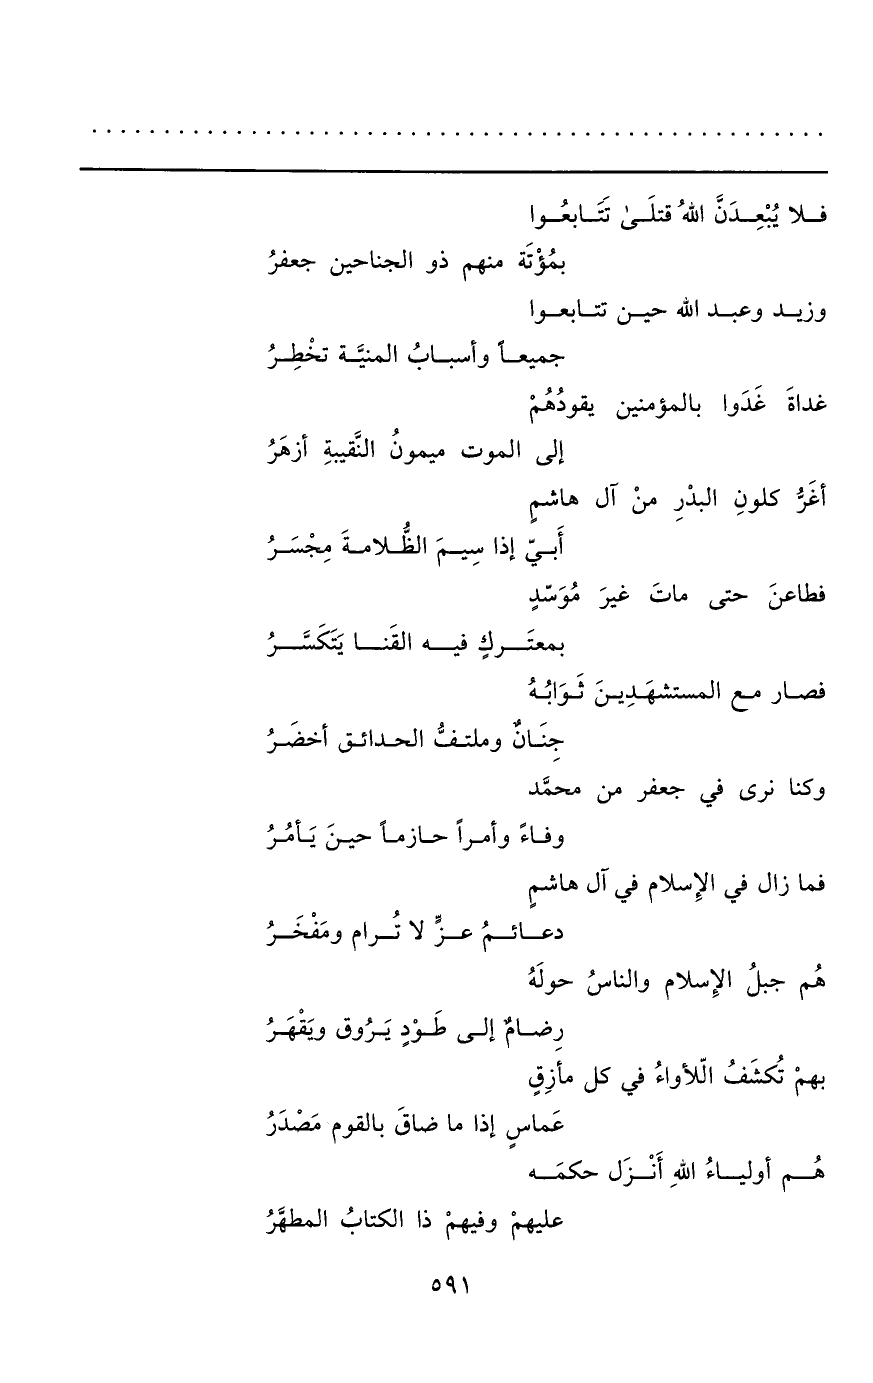 فــلا يُبْعِــدَنَّ اللهُ قتلَــىٰ تَتَــابعُــوا
بمُؤْتَة منهم ذو الجناحين جعفرُ
وزيــد وعبــد الله حيــن تتــابعــوا
جميعــاً وأسبــابُ المنيَّــة تخْطِــرُ
غداةَ غَدَوا بالمؤمنين يقودُهُمْ
إلى الموت ميمونُ النَّقيبةِ أزهَرُ
أغَرُّ كلونِ البدْرِ منْ آل هاشمٍ
أَبــيّ إذا سِيــمَ الظُّــلامــةَ مِجْسَــرُ
فطاعنَ حتى ماتَ غيرَ مُوَسّدٍ
بمعتَــركٍ فيــه القَنــا يَتَكَسَّــرُ
فصــار مــع المستشهَــدِيــنَ ثَــوَابُــهُ
جِنَــانٌ وملتــفُّ الحــدائــق أخضَــرُ
وكنا نرى في جعفر من محمَّد
وفــاءً وأمــراً حــازمــاً حيــنَ يَــأمُــرُ
فما زال في الإِسلام في آل هاشمٍ
دعــائــمُ عــزٍّ لا تُــرام ومَفْخَــرُ
هُم جبلُ الإِسلام والناسُ حولَهُ
رِضــامٌ إلــى طَــوْدٍ يَــرُوق ويَقْهَــرُ
بهمْ تُكشَفُ الّلأواءُ في كل مأزِقٍ
عَماسٍ إذا ما ضاقَ بالقوم مَصْدَرُ
هُــم أوليــاءُ اللهِ أَنْــزَل حكمَــه
عليهمْ وفيهمْ ذا الكتابُ المطهَّرُ
٥٩١